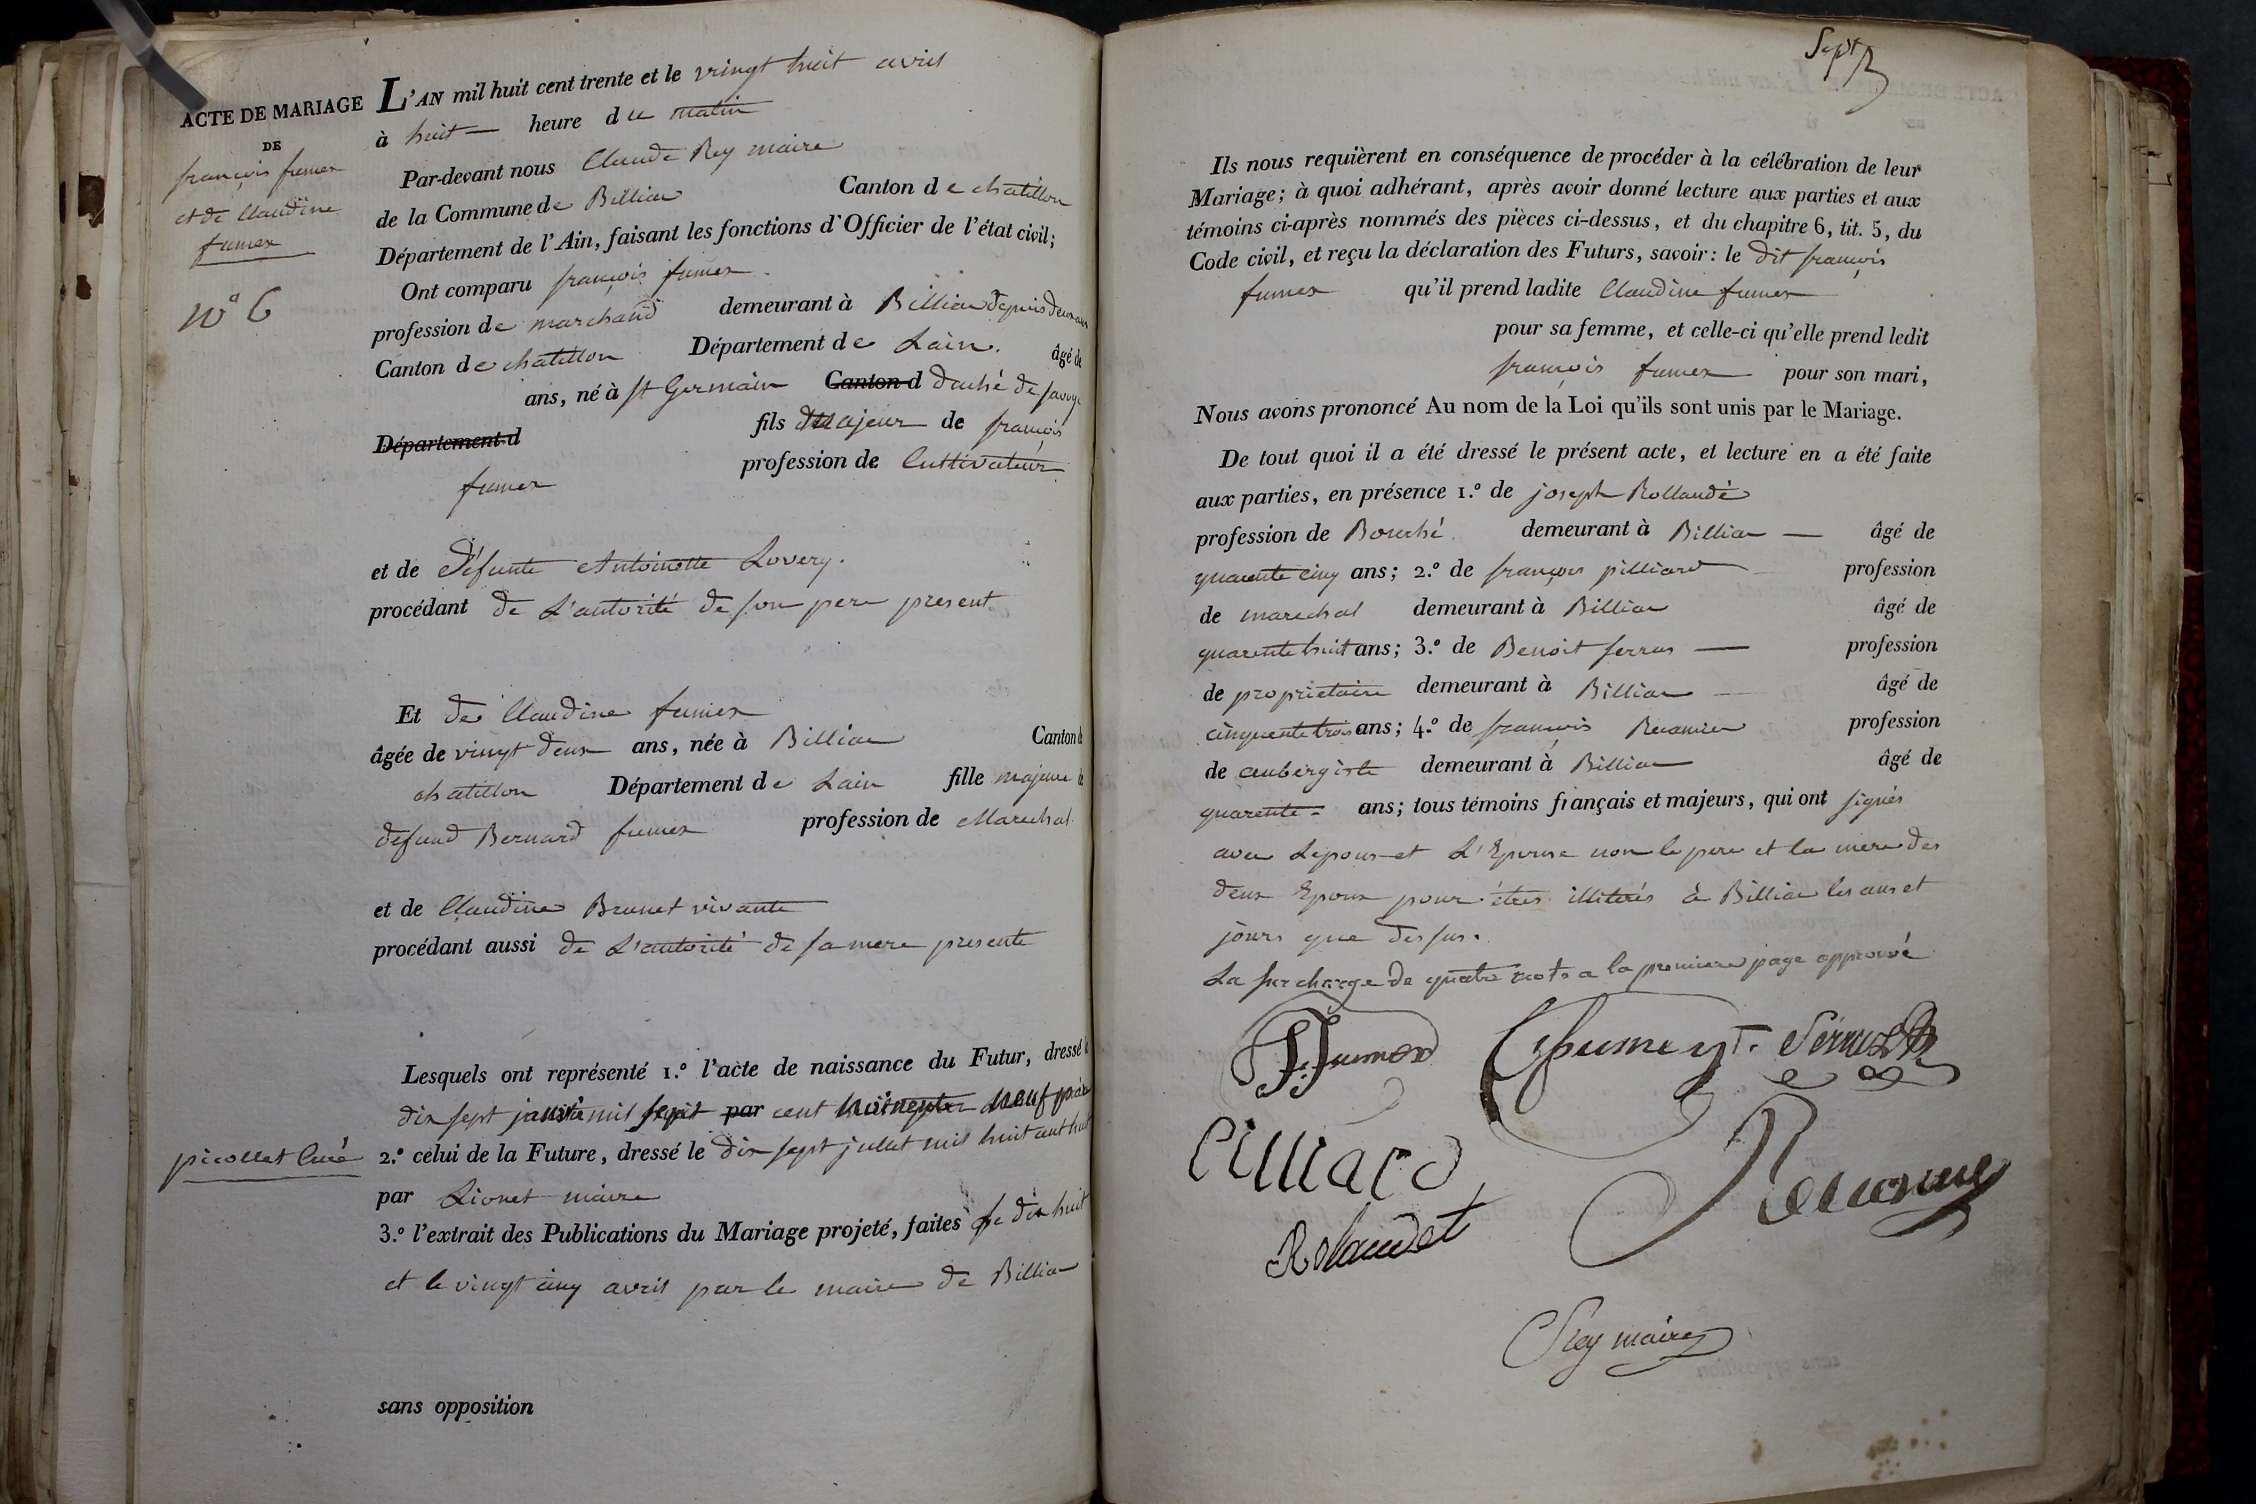 ACTE DE MARIAGE
DE
françois fumex
et de Claudine
fumex
N° 6
L'AN mil huit cent trente et le vringt huit avril
à huit — heure du matin
Par-devant nous Claude Rey maire
de la Commune de Billiat Canton de chatillon
Département de l'Ain, faisant les fonctions d'Officier de l'état civil;
Ont comparu françois fumex
profession de marchand demeurant à Billiat depuis deux ans
Canton de chatillon Département de Lain. âgé de
ans, né à St Germain Canton d duché de savoye
Département d fils majeur de françois
fumex profession de Cultivateur
et de défunte Antoinette Lovery.
procédant de L'autorité de son pere present
Et de Claudine fumex
âgée de vingt deux ans, née à Billiat Canton de
chatillon Département de Lain fille majeure de
defund Bernard fumex profession de Marechal
et de Claudine Brunet vivante
procédant aussi de L'autorité de sa mere presente
Lesquels ont représenté 1.° l'acte de naissance du Futur, dressé le
dix sept janvie mil sept par cent neuf par
picollet Curé
2.° celui de la Future, dressé le dix sept jullet mil huit cent huit
par Lionet maire
3.° l'extrait des Publications du Mariage projeté, faites le dix huit
et le vingt cinq avril par le maire de Billiat
sans opposition
Sept
Ils nous requièrent en conséquence de procéder à la célébration de leur
Mariage; à quoi adhérant, après avoir donné lecture aux parties et aux
témoins ci-après nommés des pièces ci-dessus, et du chapitre 6, tit. 5, du
Code civil, et reçu la déclaration des Futurs, savoir: le dit françois
fumex qu'il prend ladite Claudine fumex
pour sa femme, et celle-ci qu'elle prend ledit
françois fumex pour son mari,
Nous avons prononcé Au nom de la Loi qu'ils sont unis par le Mariage.
De tout quoi il a été dressé le présent acte, et lecture en a été faite
aux parties, en présence 1.° de joseph Rollandé
profession de Bouché demeurant à Billiat — âgé de
quarente cinq ans; 2.° de françois pilliard profession
de marechal demeurant à Billiat âgé de
quarente huit ans; 3.° de Benoit ferras — profession
de proprietaire demeurant à Billiat âgé de
cinquente trois ans; 4.° de françois Recamier profession
de aubergiste demeurant à Billiat âgé de
quarente - ans; tous témoins français et majeurs, qui ont signés
avec Lepoux et L'Epouse non le pere et la mere des
deux Epoux pour étres illiterés à Billiat les ans et
jours que dessus.
La surcharge de quatre mots a la premiere page approuvé
f. fumex
C fumex
Pilliard
Rolaudet
Rey maire